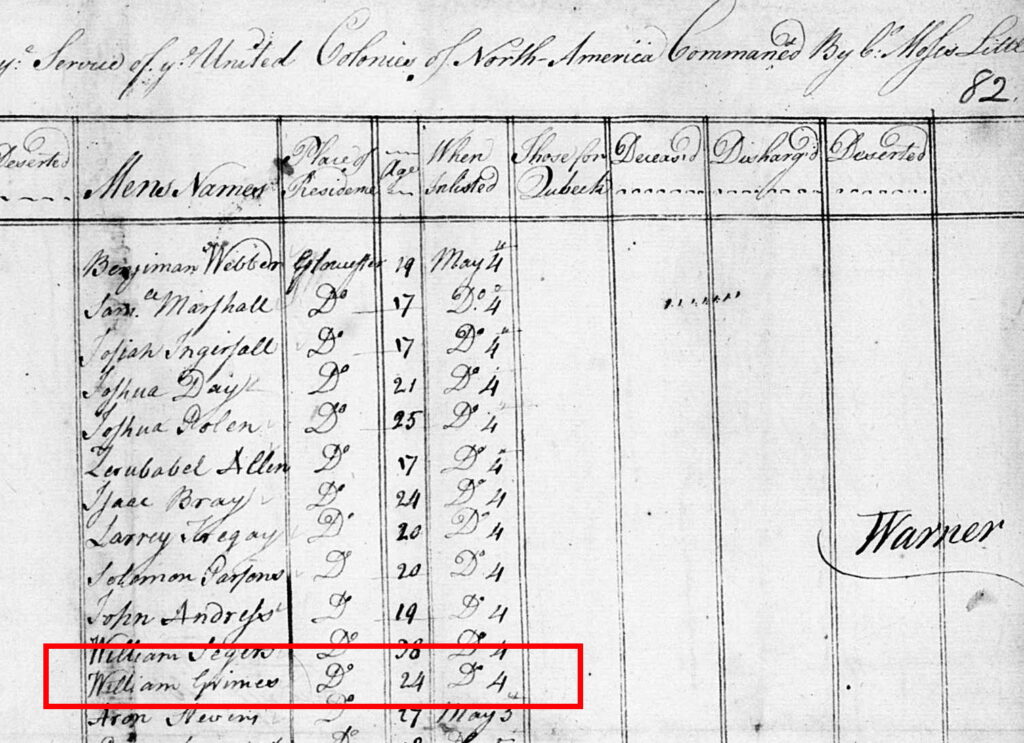 yᵉ Service of yᵉ United Colonies of North-America Commanded By Cᵒ Moses Littl
82.
Deserted Mens Names Place of Residence Age When Inlisted Those for Qubeck Deceas'd Discharg'd Deserted
Benjiman Webber Gloucester 19 May 4
Samˡˡ Marshall Dᵒ 17 Dᵒ 4
Josiah Ingersall Dᵒ 17 Dᵒ 4
Joshua Day Dᵒ 21 Dᵒ 4
Joshua Polen Dᵒ 25 Dᵒ 4
Zerubabel Allen Dᵒ 17 Dᵒ 4
Isaac Bray Dᵒ 24 Dᵒ 4
Larrey Tregay Dᵒ 20 Dᵒ 4
Warner
Solomon Parsons Dᵒ 20 Dᵒ 4
John Andress Dᵒ 19 Dᵒ 4
William Segers Dᵒ 38 Dᵒ 4
William Grimes Dᵒ 24 Dᵒ 4
Aron Stevens Dᵒ 27 May 5